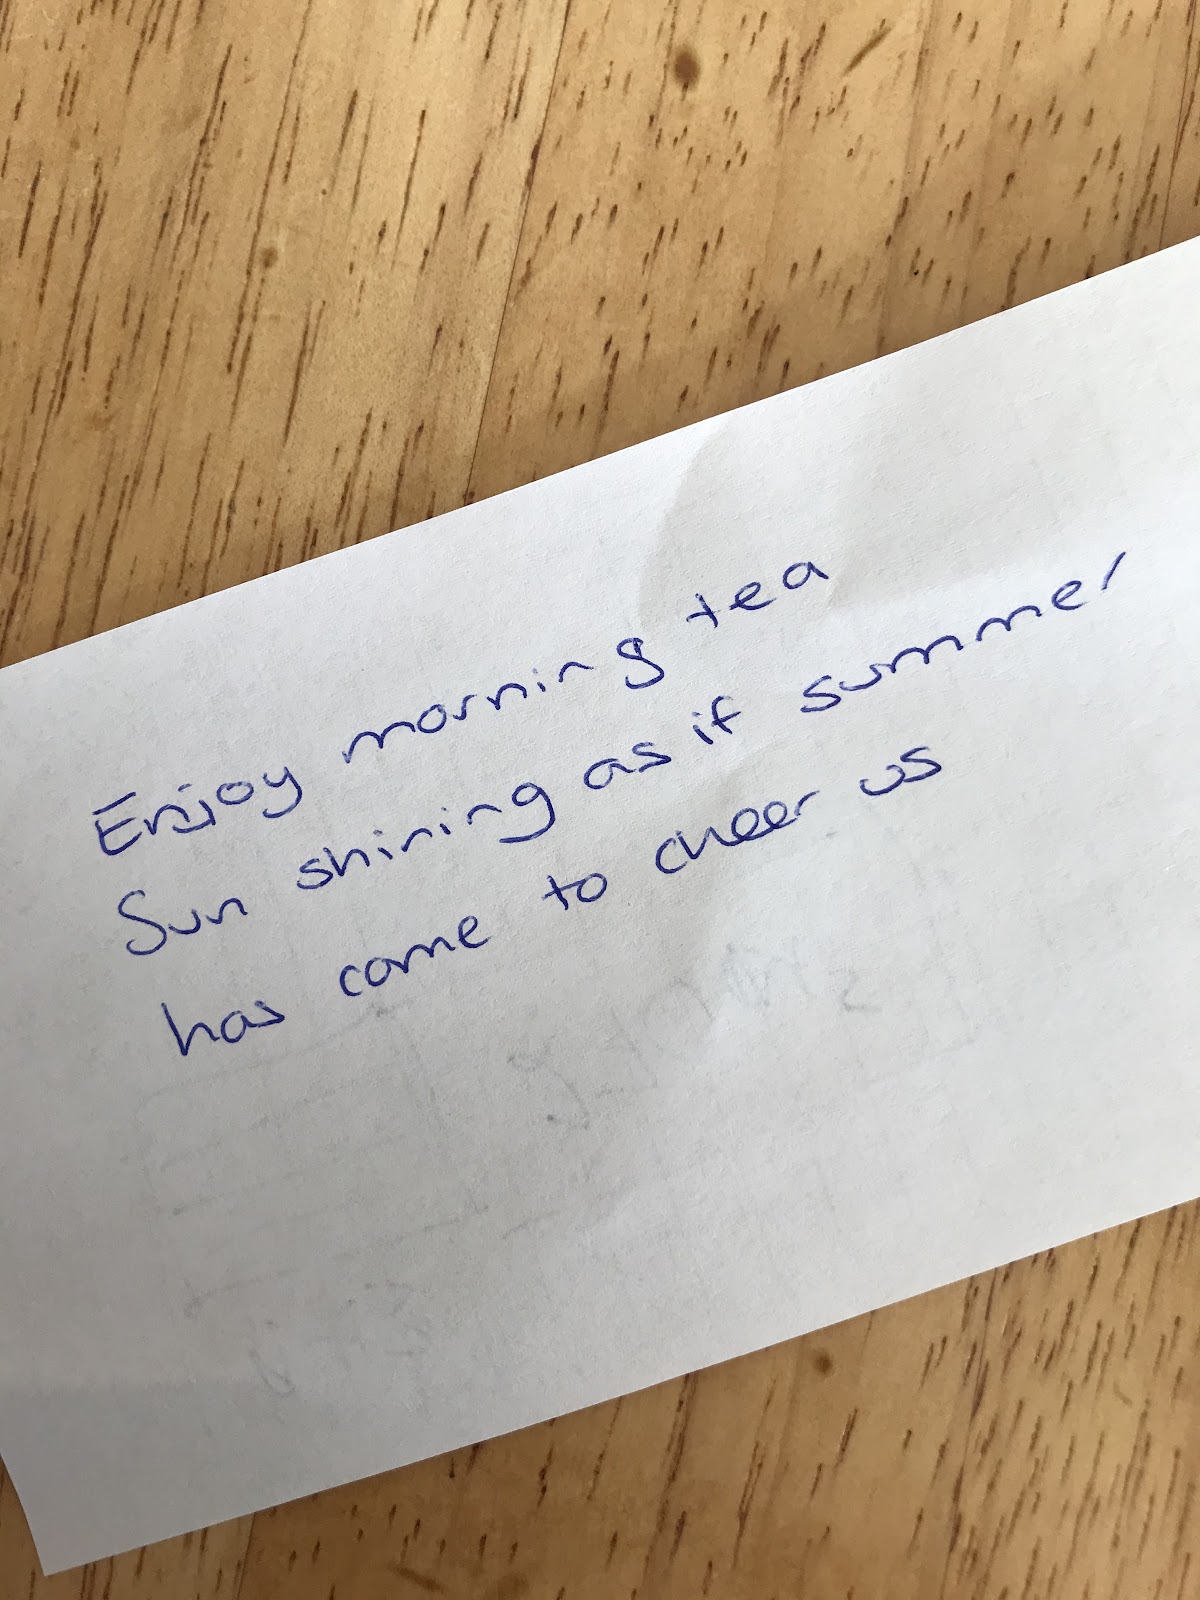 Enjoy morning tea
Sun shining as if summer
has come to cheer us